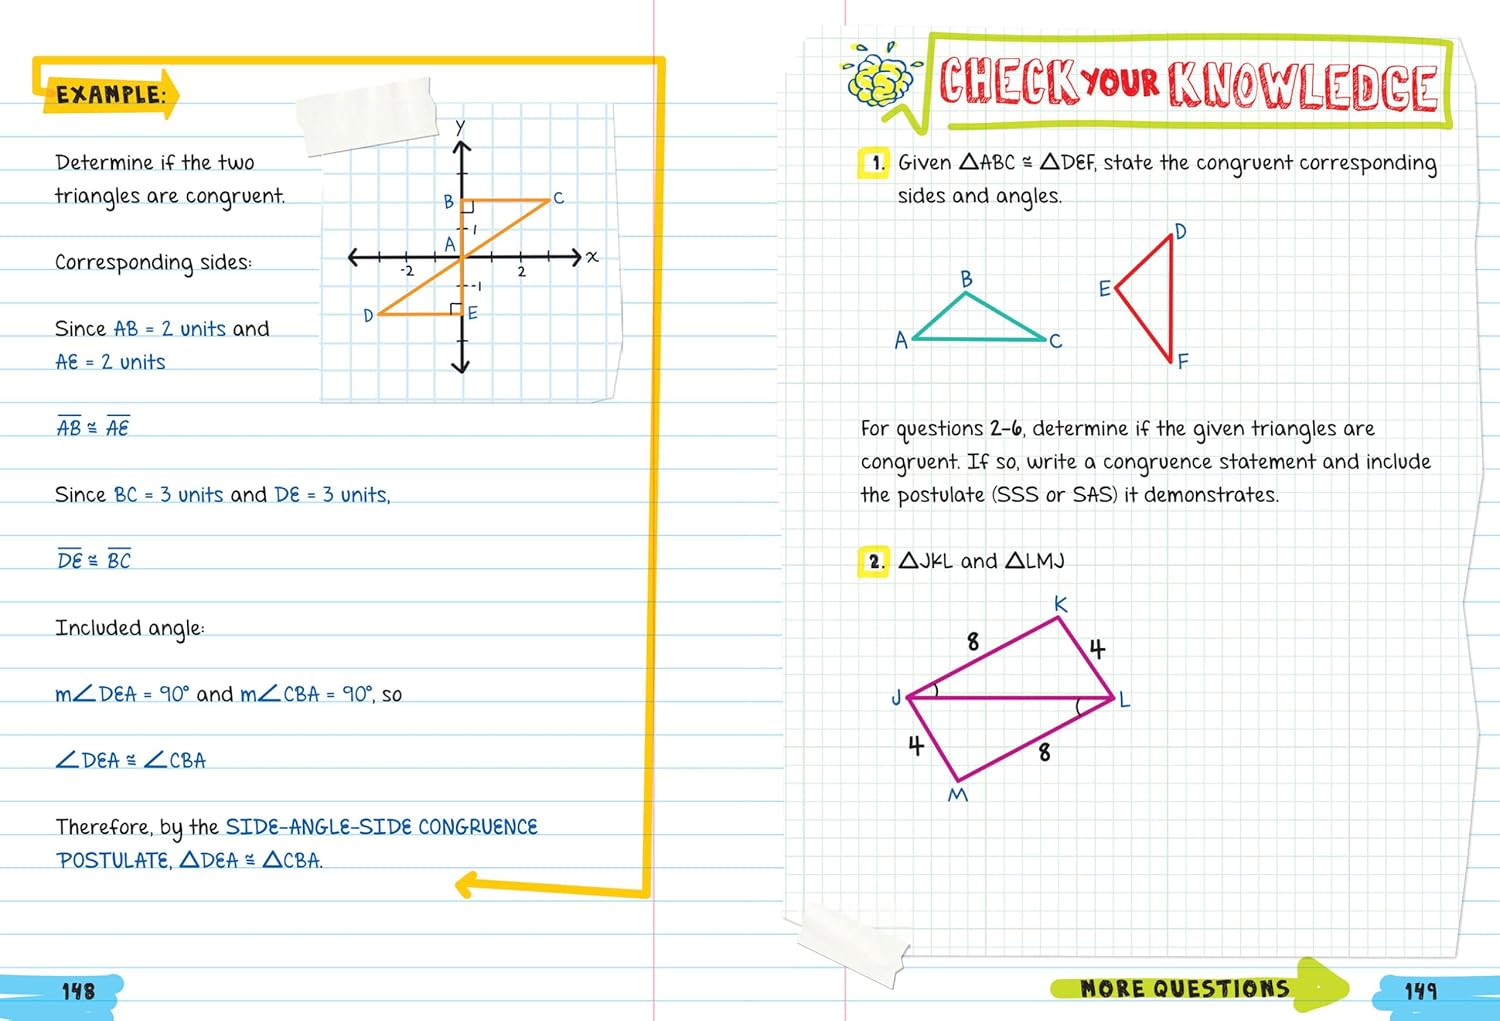 EXAMPLE:
Determine if the two
triangles are congruent.
Corresponding sides:
Since AB = 2 units and
AE = 2 units
AB ≅ AE
Since BC = 3 units and DE = 3 units,
DE ≅ BC
Included angle:
m∠DEA = 90° and m∠CBA = 90°, so
∠DEA ≅ ∠CBA
Therefore, by the SIDE-ANGLE-SIDE CONGRUENCE
POSTULATE, △DEA ≅ △CBA.
y
B
C
1
A
x
-2
2
-1
D
E
148
CHECK YOUR KNOWLEDGE
1. Given △ABC ≅ △DEF, state the congruent corresponding
sides and angles.
B
A
C
D
E
F
For questions 2-6, determine if the given triangles are
congruent. If so, write a congruence statement and include
the postulate (SSS or SAS) it demonstrates.
2. △JKL and △LMJ
K
8
4
J
L
4
8
M
MORE QUESTIONS
149